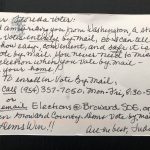 Dear Florida Voter:
I am writing you from Washington, a state
votes entirely by mail, so I can tell
how easy, convenient, and safe it is
vote by mail. You never need to miss
election when you vote by mail -
your home!
To enroll in Vote by Mail:
Call (954) 357-7050, Mon-Fri, 8:30-5
or
email Elections@Broward SOE.org
In Broward County, Dems vote by mail
Dems Win!!
All the best, Judi